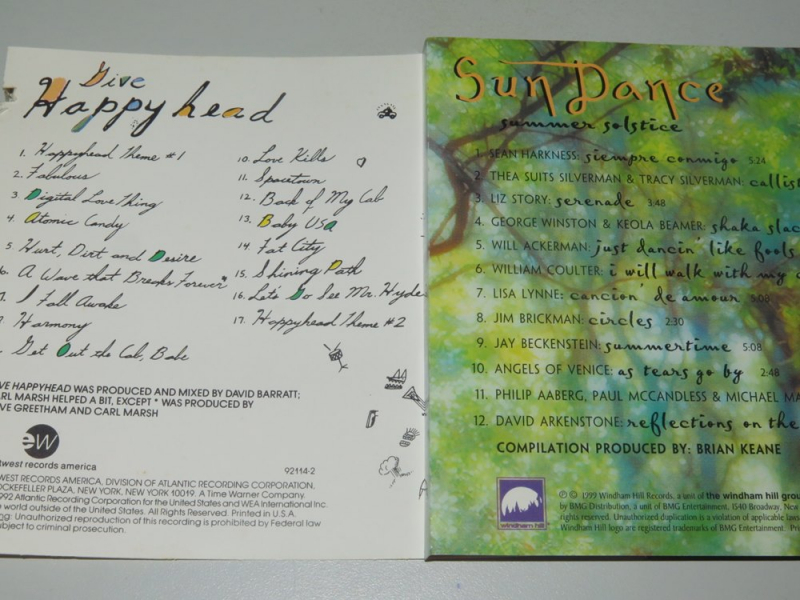 Give
Happyhead
1. Happyhead Theme #1
2. Fabulous
3. Digital Love Thing
4. Atomic Candy
5 Hurt, Dirt and Desire
6. A Wave that Breaks Forever*
I Fall Awake
Harmony
Get Out the Cab, Babe
10. Love Kills
11. Spacetown
12. Back of My Cab
13. Baby USA
14. Fat City
15. Shining Path
16. Let's Go See Mr. Hyde
17. Happyhead Theme #2
VE HAPPYHEAD WAS PRODUCED AND MIXED BY DAVID BARRATT;
ARL MARSH HELPED A BIT, EXCEPT * WAS PRODUCED BY
VE GREETHAM AND CARL MARSH
ew
stwest records america
92114-2
WEST RECORDS AMERICA, DIVISION OF ATLANTIC RECORDING CORPORATION,
OCKEFELLER PLAZA, NEW YORK, NEW YORK 10019. A Time Warner Company.
992 Atlantic Recording Corporation for the United States and WEA International Inc.
e world outside of the United States. All Rights Reserved. Printed in U.S.A.
ng: Unauthorized reproduction of this recording is prohibited by Federal law
ubject to criminal prosecution.
Sun Dance
summer solstice
1. SEAN HARKNESS: siempre conmigo 5:24
2. THEA SUITS SILVERMAN & TRACY SILVERMAN: callist
3. LIZ STORY: serenade 3:48
4. GEORGE WINSTON & KEOLA BEAMER: shaka slac
5. WILL ACKERMAN: just dancin' like fools
6. WILLIAM COULTER: i will walk with my
7. LISA LYNNE: cancion' de amour 5:08
8. JIM BRICKMAN: circles 2:30
9. JAY BECKENSTEIN: summertime 5:08
10. ANGELS OF VENICE: as tears go by 2:48
11. PHILIP AABERG, PAUL MCCANDLESS & MICHAEL MA
12. DAVID ARKENSTONE: reflections on the
COMPILATION PRODUCED BY: BRIAN KEANE
windham hill
℗ © 1999 Windham Hill Records, a unit of the windham hill grou
by BMG Distribution, a unit of BMG Entertainment, 1540 Broadway, New
rights reserved. Unauthorized duplication is a violation of applicable laws
Windham Hill logo are registered trademarks of BMG Entertainment. Pri